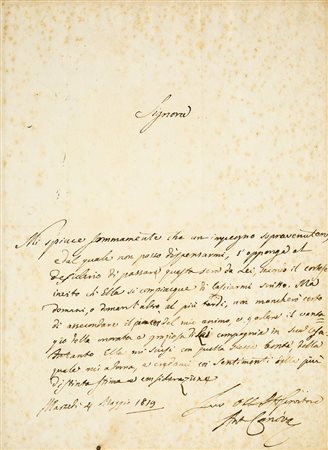 Signora
Mi spiace sommamente che un impegno sopravenutomi
dal quale non posso dispensarmi, s'opponga al
desiderio di passare questa sera da Lei, giusto il cortese
invito ch'Ella si compiacque di lasciarmi scritto. Ma
domani, o dimani l'altro al più tardi, non mancherò certo
di assecondare il del mio animo e godere il vantag
gio della grata e preziosa di Lei compagnia in sua casa
Intanto Ella mi scusi con quella bontà della
quale mi onora, e credami coi sentimenti della più
distinta stima e considerazione
Martedì 4 Maggio 1819
Suo Obb. Servitore
Ant. Canova